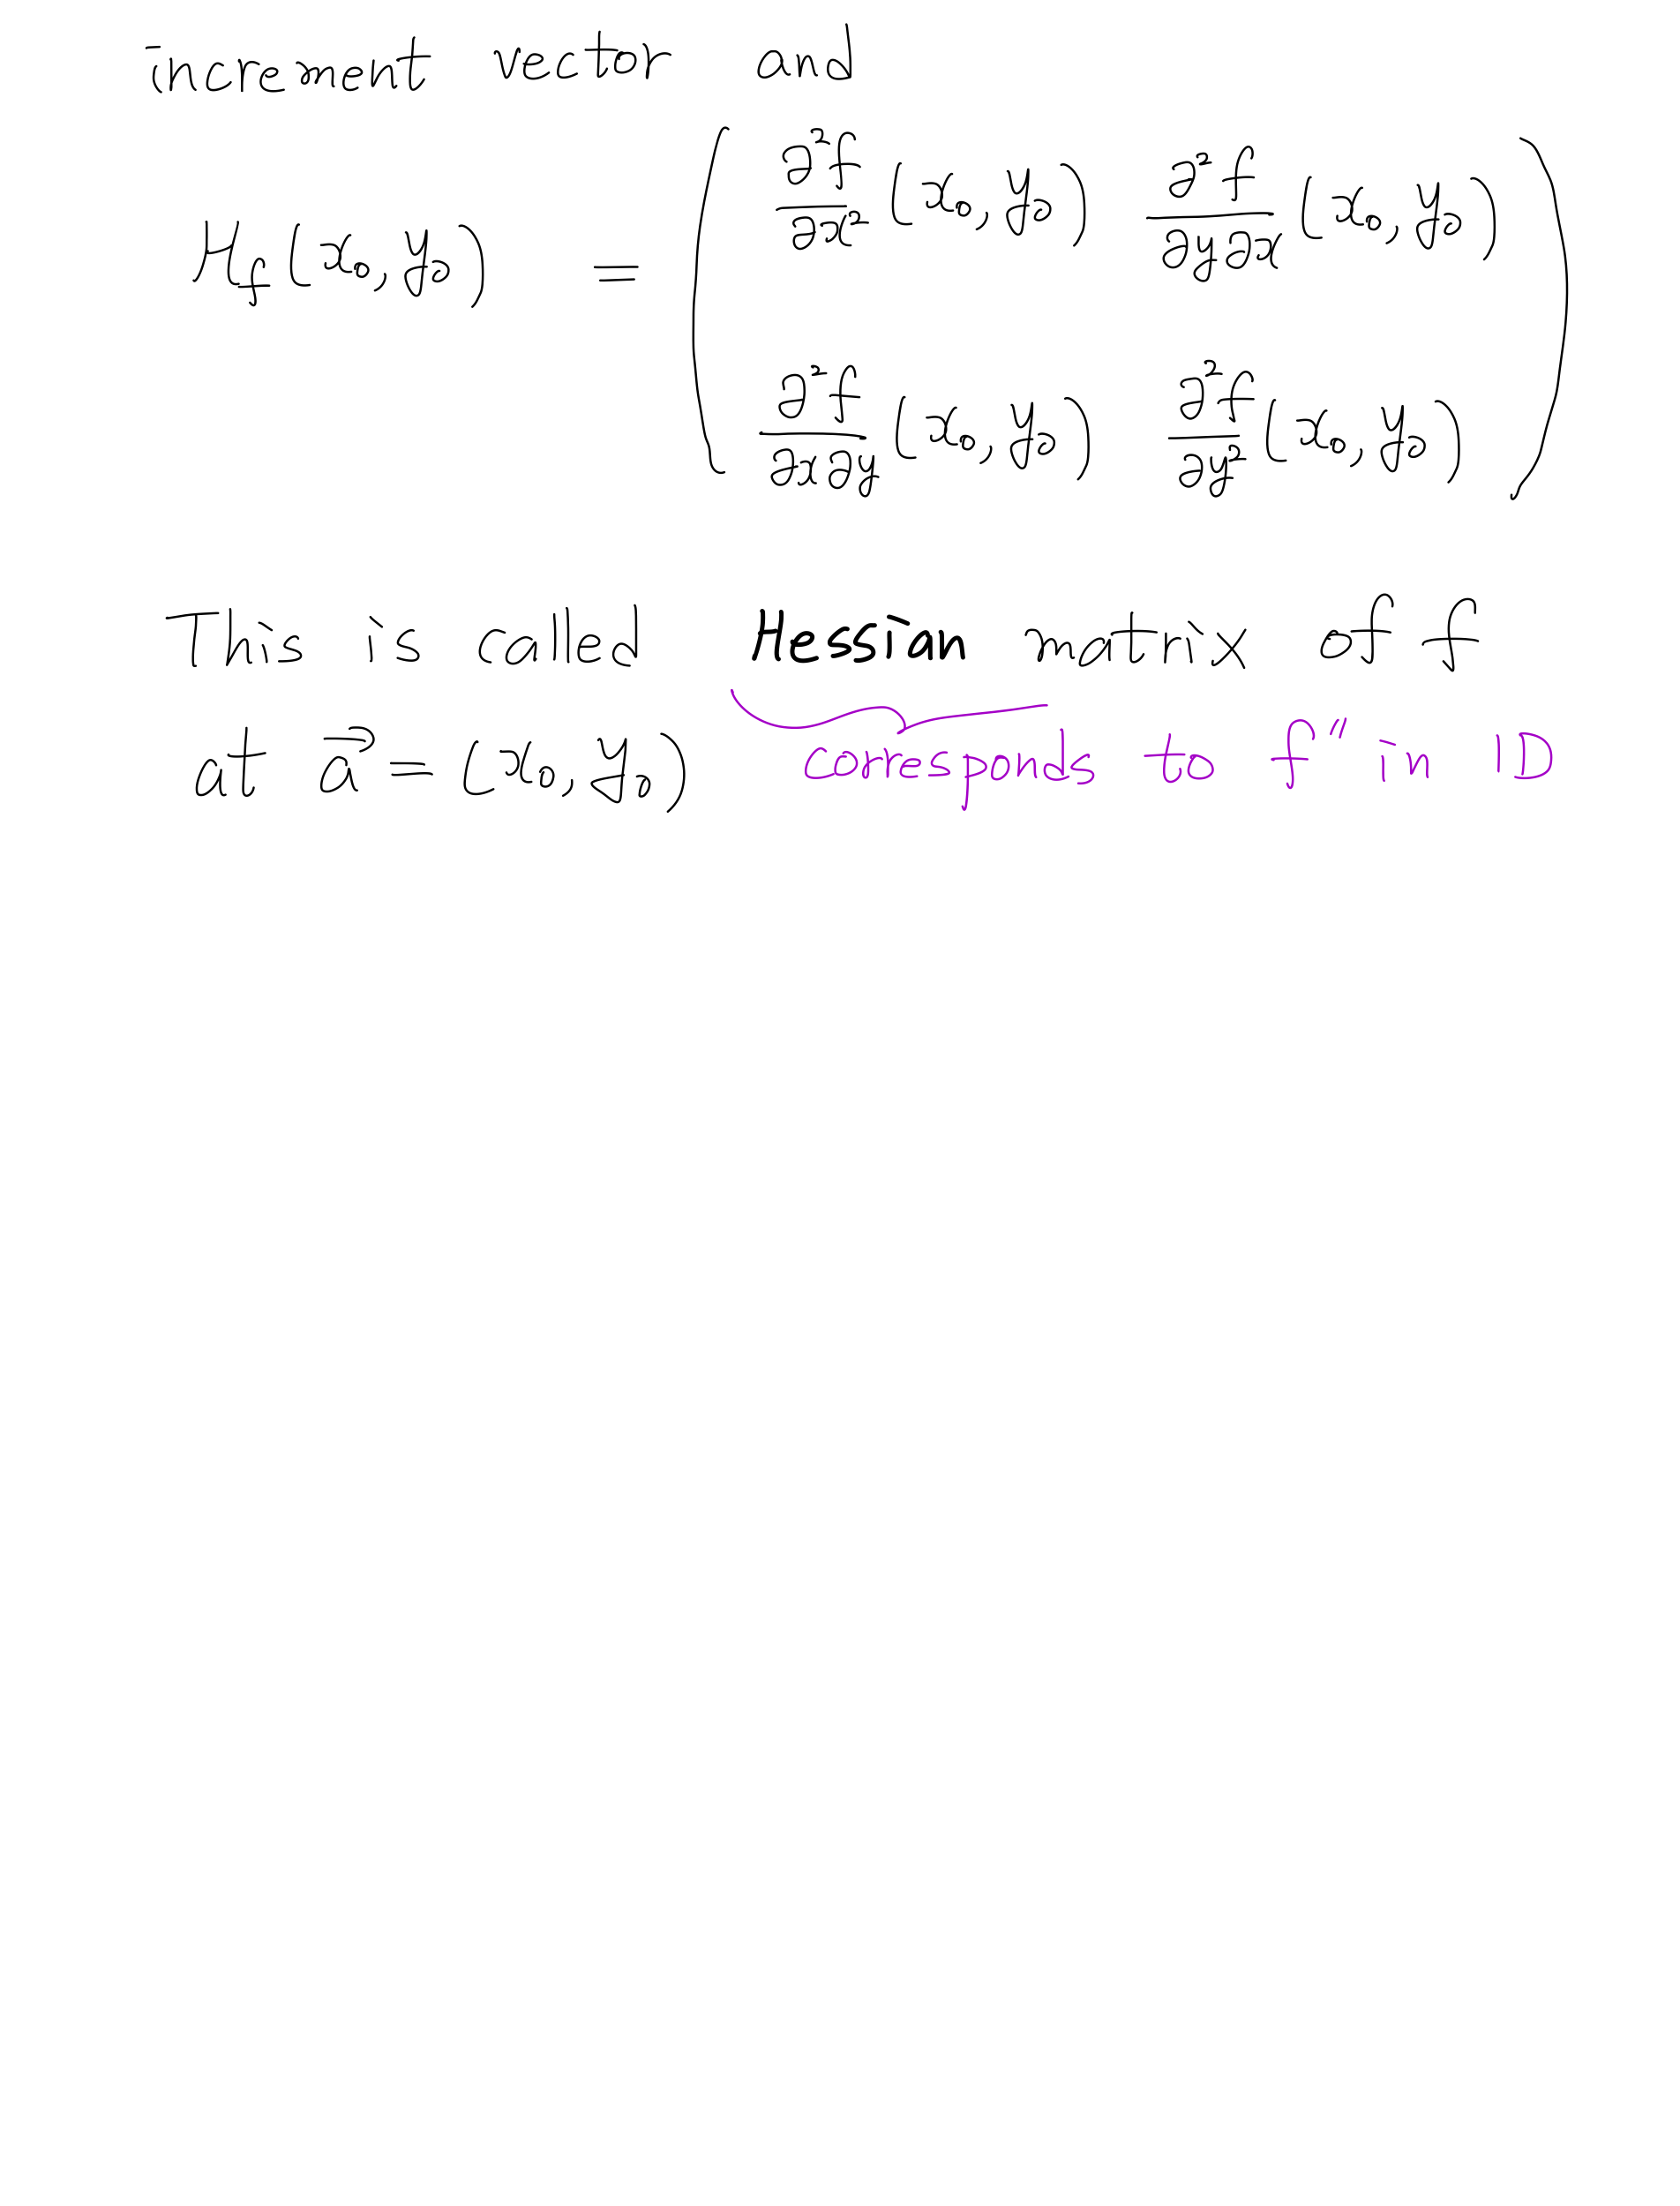 increment vector and
H_f(x₀, y₀) = ( ∂²f/∂x² (x₀, y₀)  ∂²f/∂y∂x (x₀, y₀)
∂²f/∂x∂y (x₀, y₀)  ∂²f/∂y² (x₀, y₀) )
This is called Hessian matrix of f
at a⃗ = (x₀, y₀) corresponds to f'' in 1D